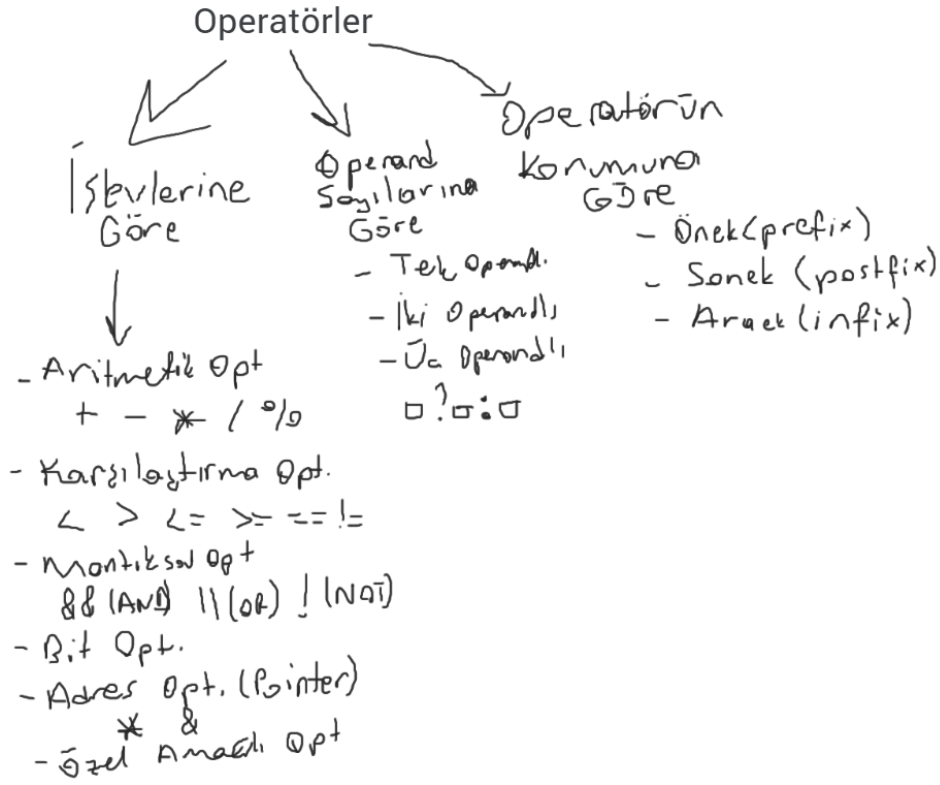 Operatörler
İşlevlerine
Göre
- Aritmetik Opt
+ - * / %
- Karşılaştırma Opt.
< > <= >= == !=
- Mantıksal Opt
&& (AND) || (OR) ! (NOT)
- Bit Opt.
- Adres Opt. (Pointer)
* &
- Özel Amaçlı Opt
Operand
Sayılarına
Göre
- Tek Operand.
- İki Operandlı
- Üç Operandlı
□ ? □ : □
Operatörün
Konumuna
Göre
- Önek (prefix)
- Sonek (postfix)
- Araek (infix)